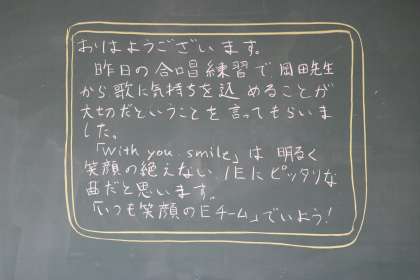 おはようございます。
昨日の合唱練習で岡田先生
から歌に気持ちを込めることが
大切だということを言ってもらいま
した。
「With you smile」は 明るく
笑顔の絶えない 1Eにピッタリな
曲だと思います。
「いつも笑顔のEチーム」でいよう!